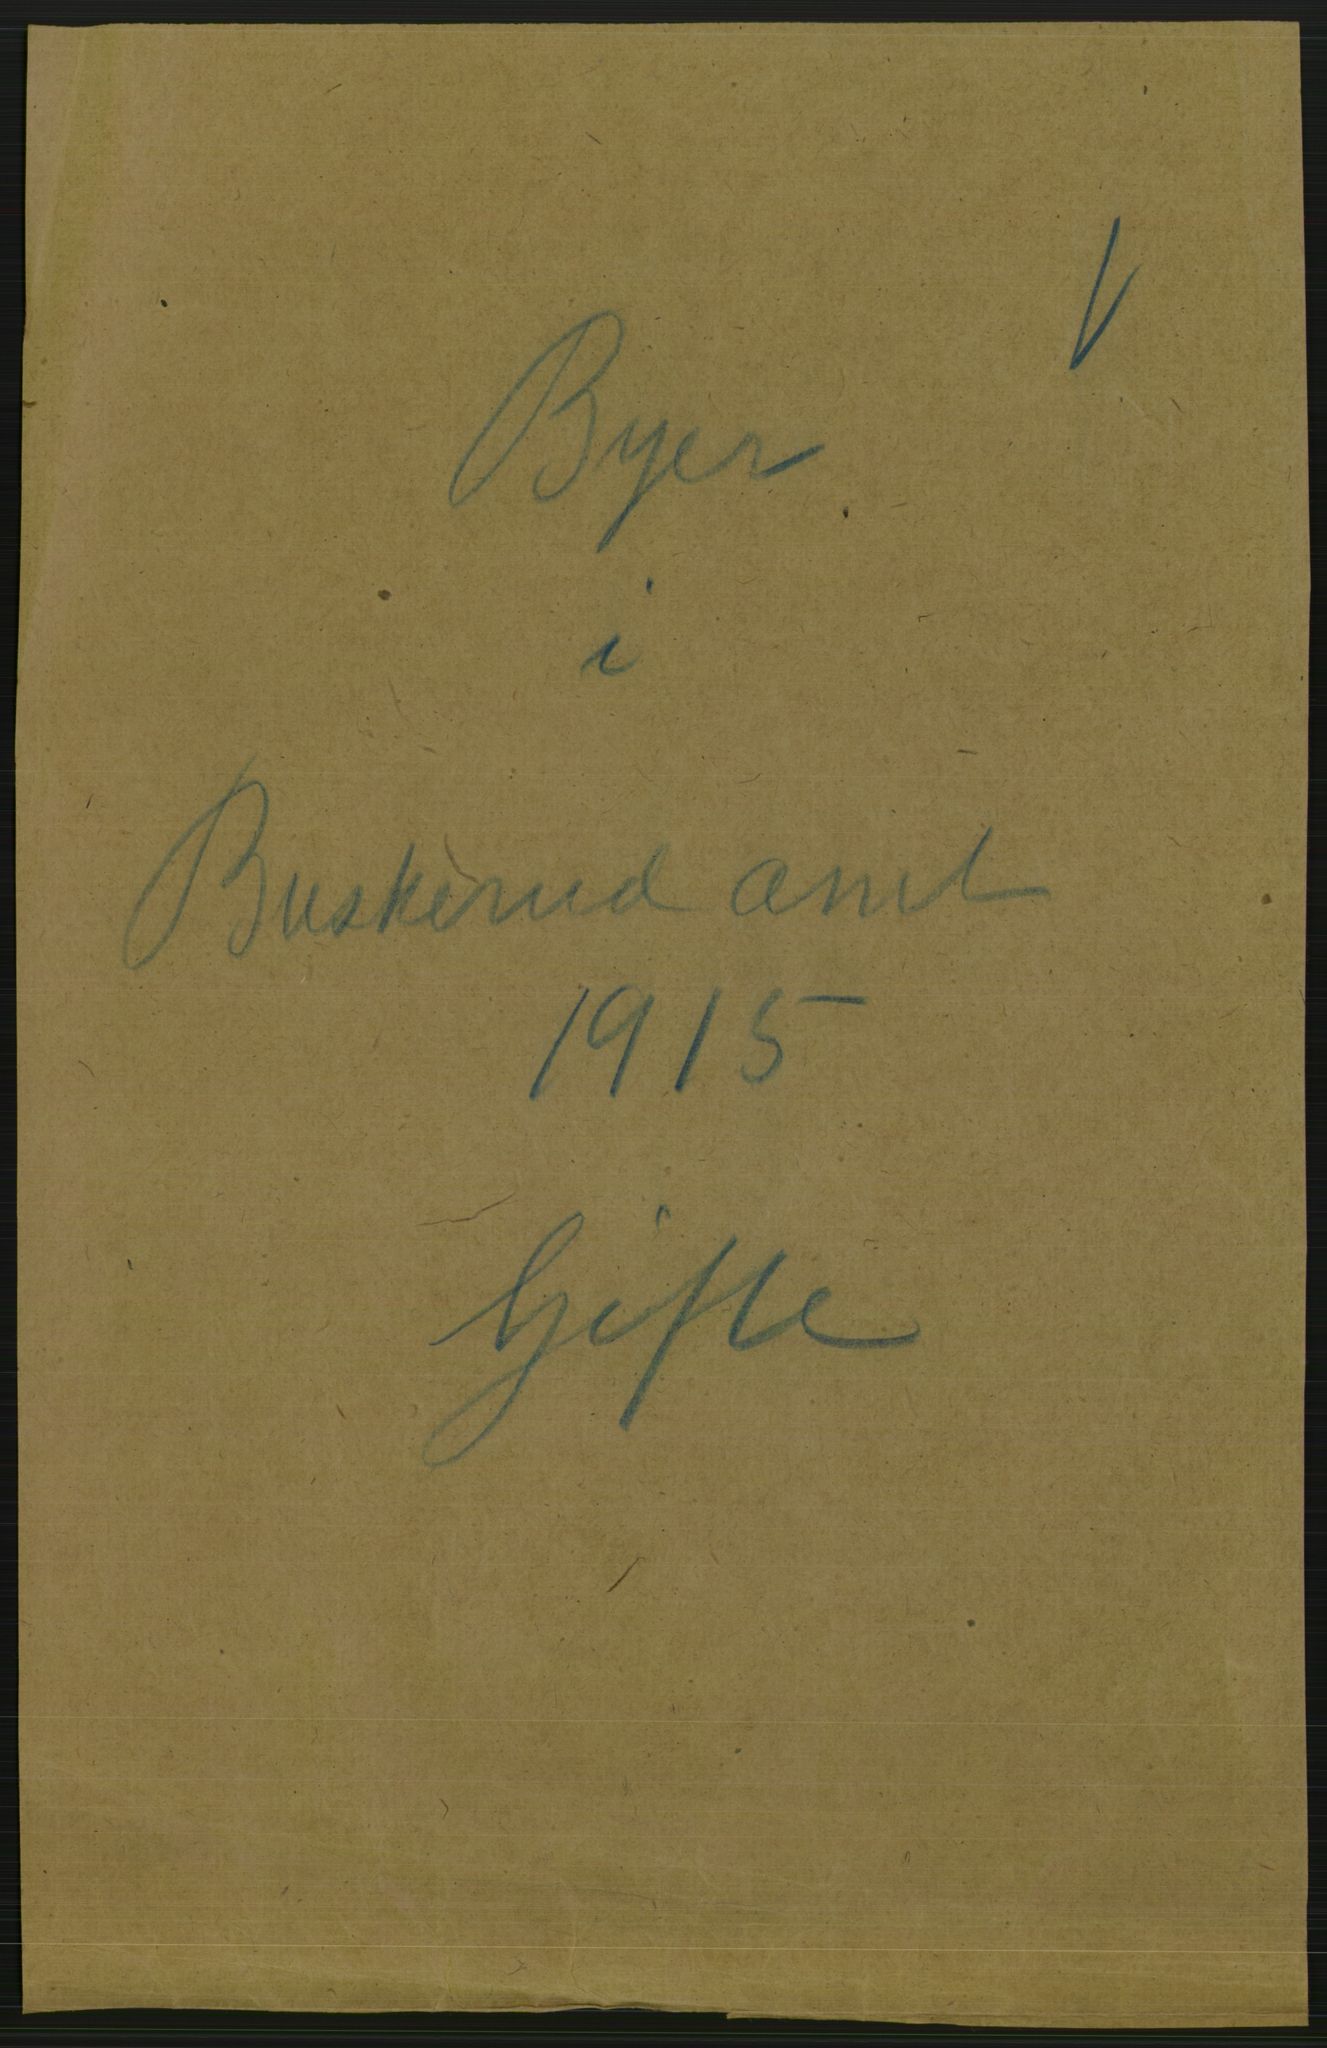 V
Byer
i
Buskerud amt
1915
Gifte